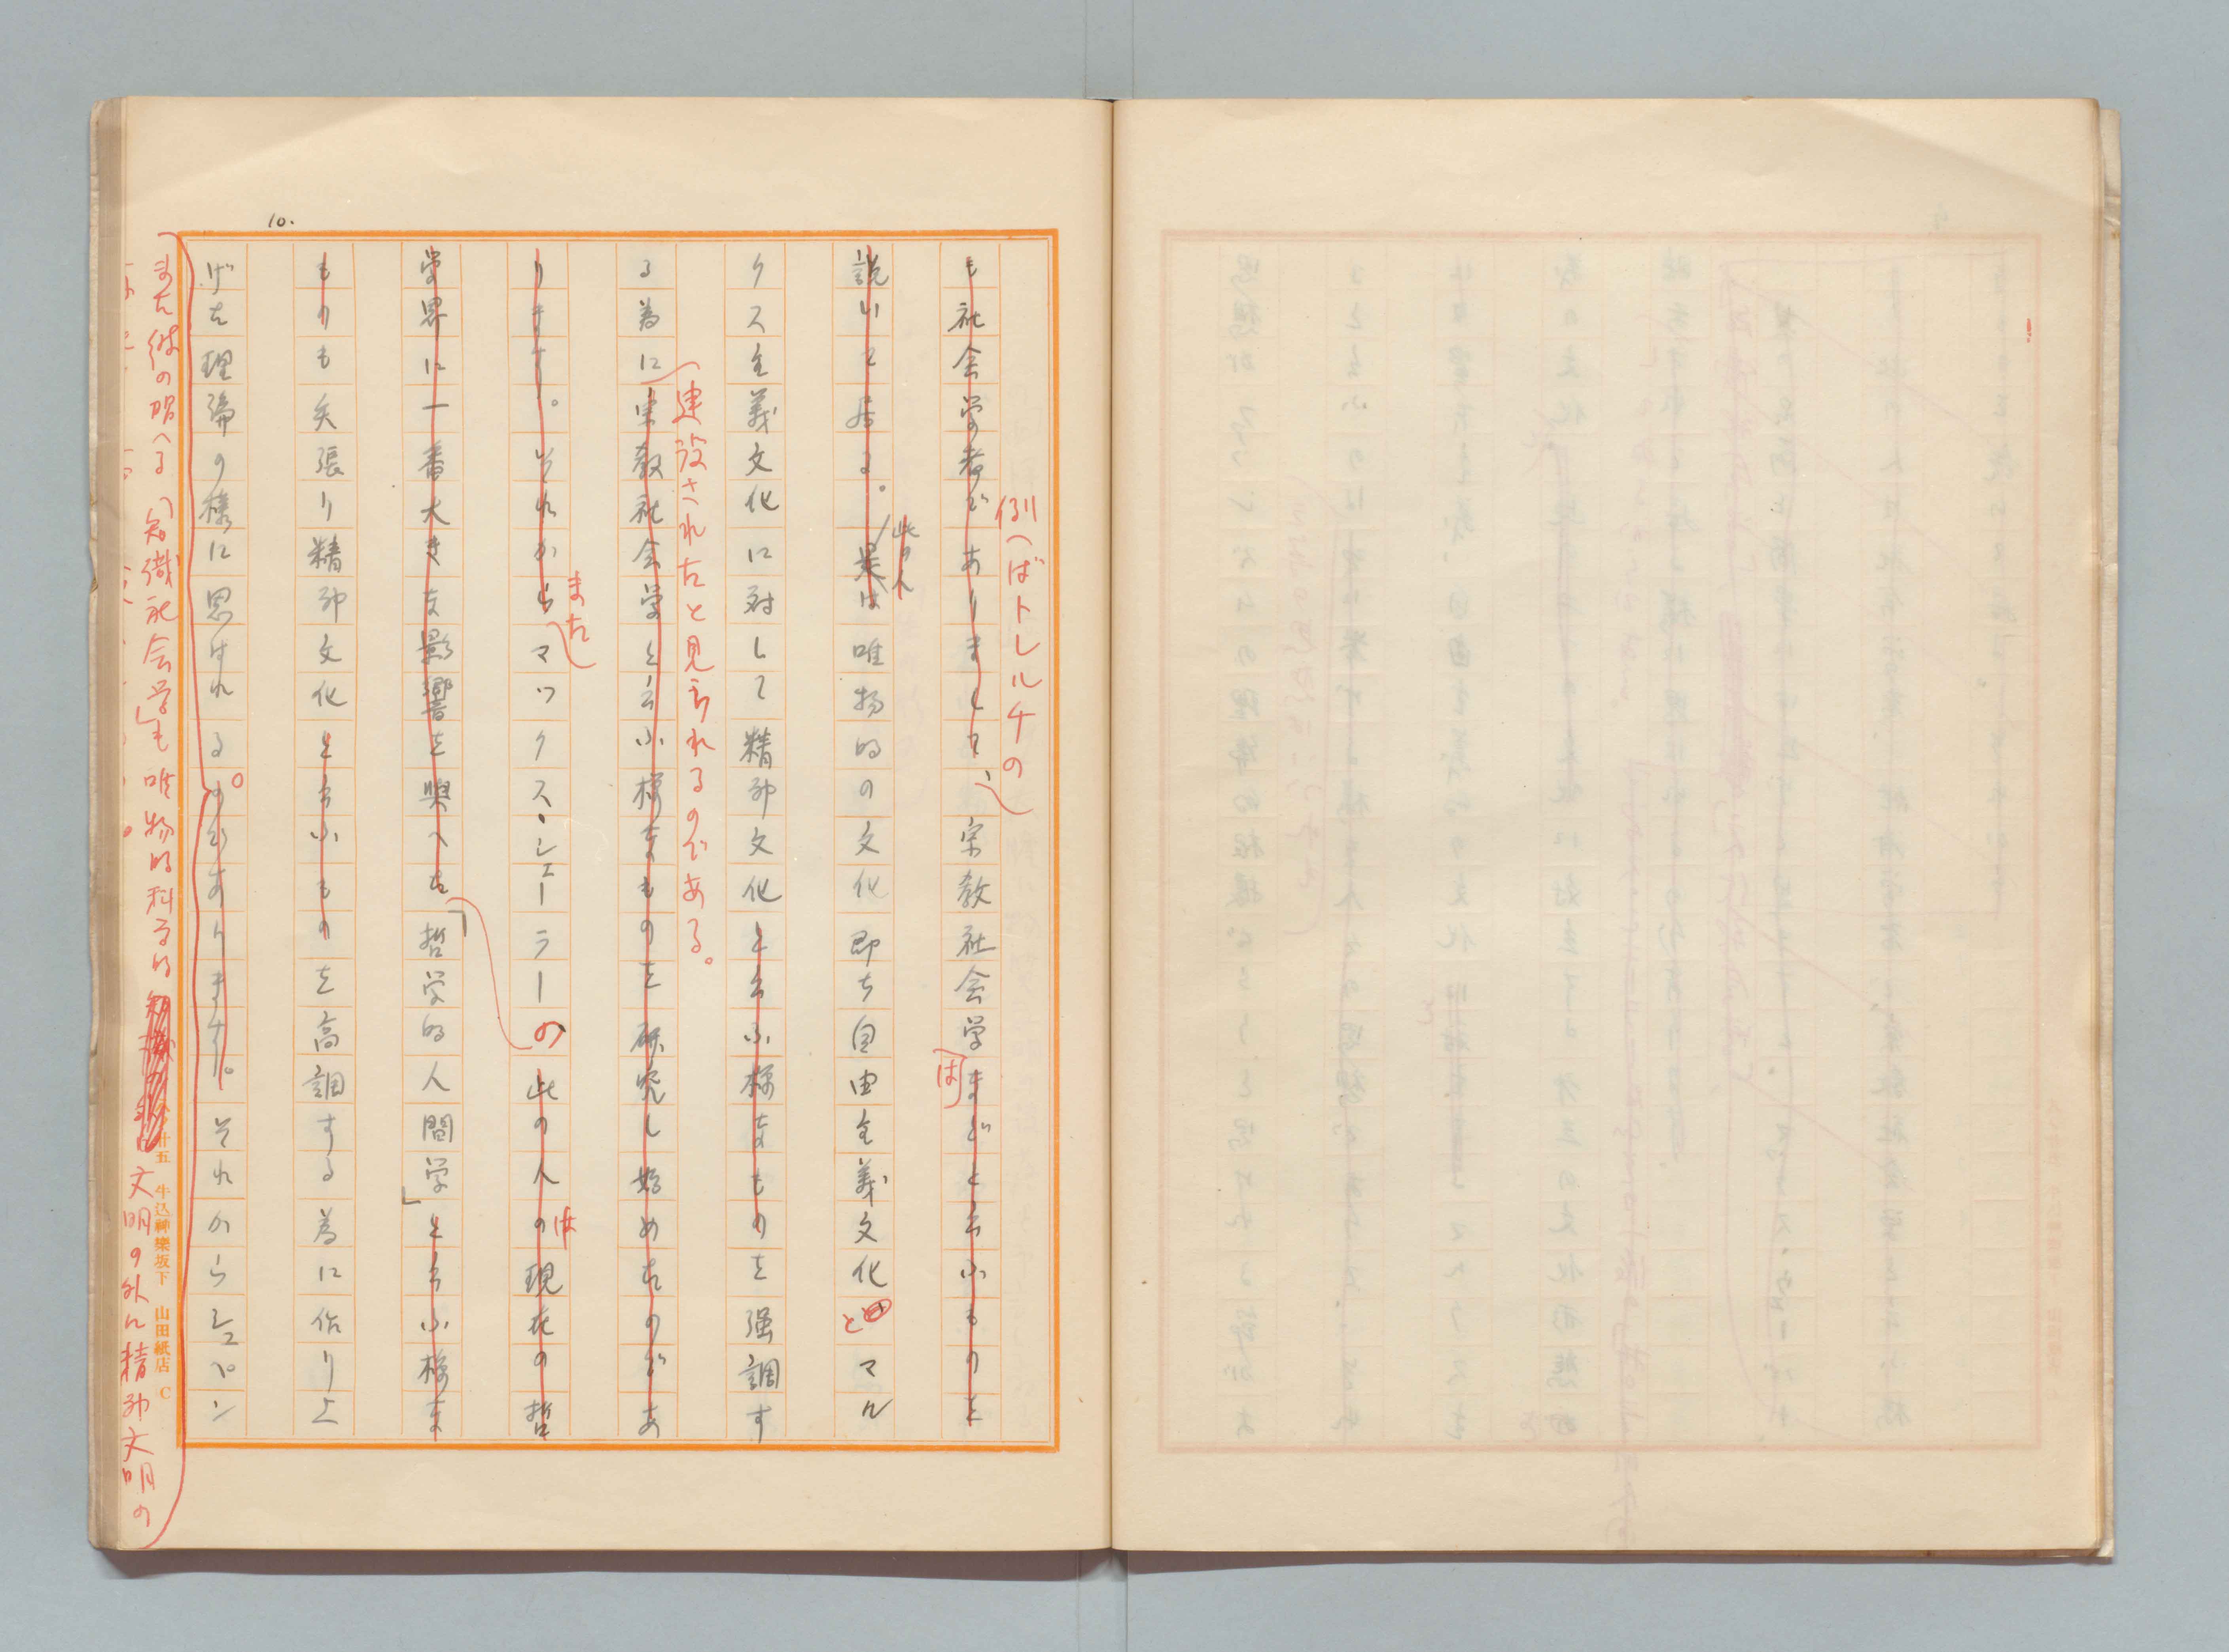 10.
例へばトレルチの
も社会学者でありまして、宗教社会学などと云ふものを
は
説いて居る。是は唯物的の文化即ち自由主義文化とマル
此の人
クス主義文化に対して精神文化と云ふ様なものを强調す
建設されたと見られるのである。
る為に宗教社会学と云ふ様なものを研究し始めたのであ
また
ります。それからマックス・シェーラーの此の人の現在の哲
は
学界に一番大きな影響を與へた「哲学的人間学」と云ふ様な
ものも矢張り精神文化と云ふものを高調する為に作り上
げた理論の様に思はれる。のであります。それからシュペン
また彼の唱へる「知識社会学」も唯物的科学的
文明の外に精神文明の
廿五 牛込神樂坂下 山田紙店 C